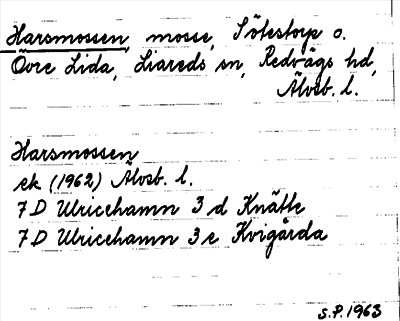 Harsmossen, mosse, Sötestorp o.
Övre Lida, Liareds sn, Redvägs hd,
Älvsb. l.
Harsmossen
ek (1962) Älvsb. l.
7 D Ulricehamn 3 d Knätte
7 D Ulricehamn 3 e Kvigärda
S.P. 1963